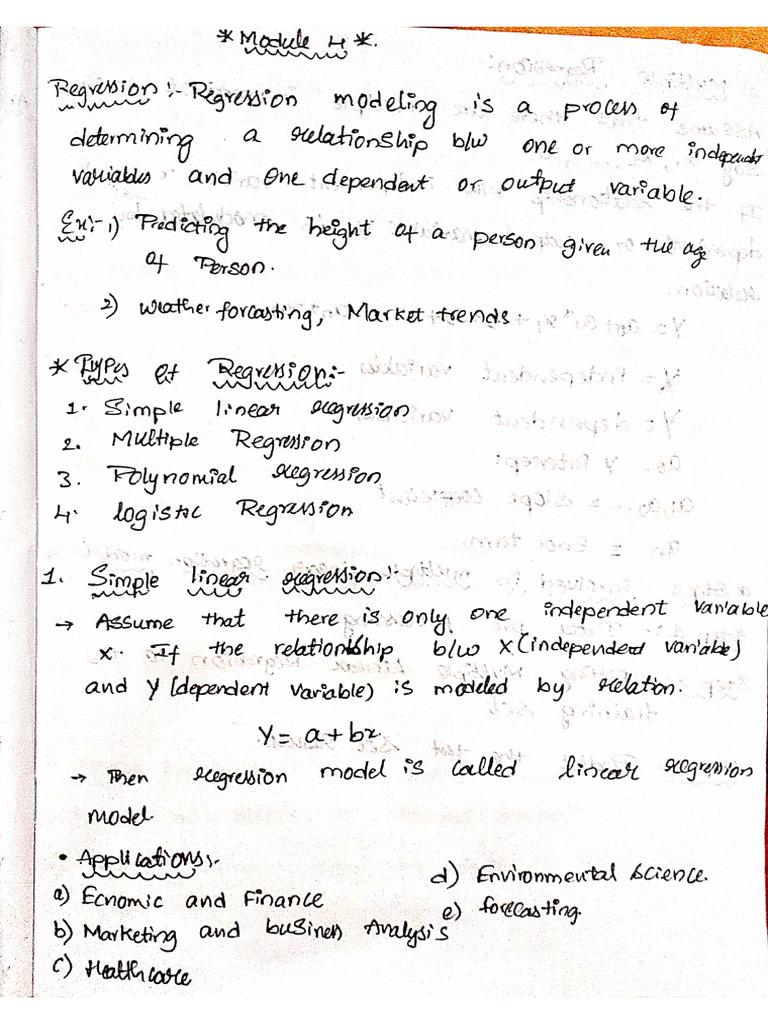 * Module 4 *.
Regression :- Regression modeling is a process of
determining a relationship b/w one or more independent
variables and one dependent or output variable.
Ex:- 1) Predicting the height of a person given the age
of Person.
2) weather forcasting, Market trends
* Types of Regression:-
1. Simple linear regression
2. Multiple Regression
3. Polynomial regression
4. logistic Regression
1. Simple linear regression:-
→ Assume that there is only one independent variable
x. If the relationship b/w x (independent variable)
and y (dependent variable) is modeled by relation.
Y = a + bx
→ Then regression model is called linear regression
model.
• Applications:-
a) Ecnomic and Finance
b) Marketing and business Analysis
c) Healthcare
d) Environmental Science.
e) forecasting.